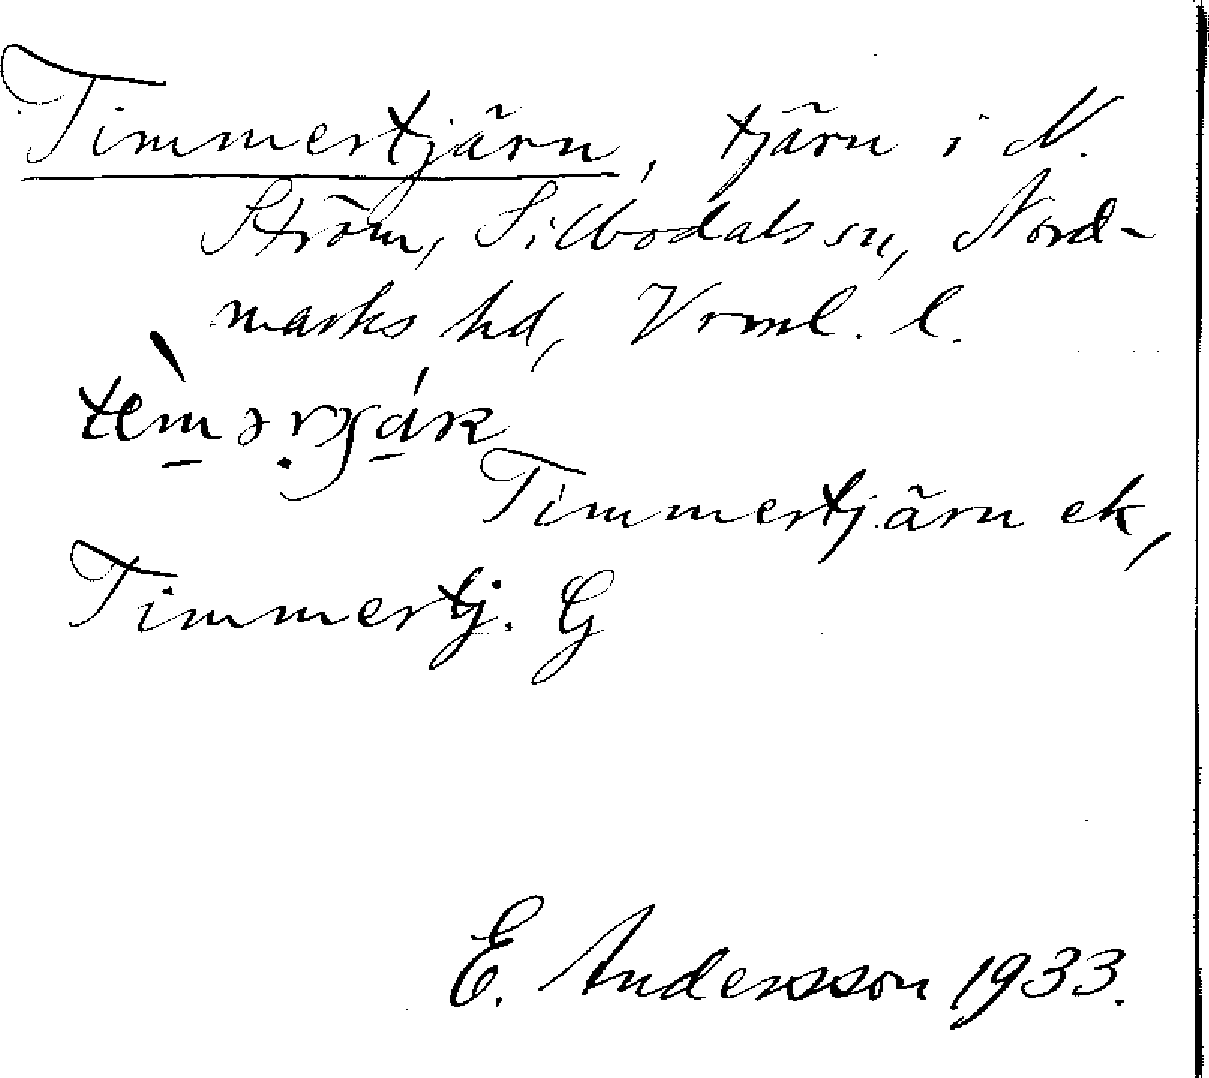 Timmertjärn, tjärn i N.
Ström, Silbodals sn, Nord-
marks hd, Vrml. l.
Timmertjärn ek,
Timmertj. G
E. Andersson 1933.